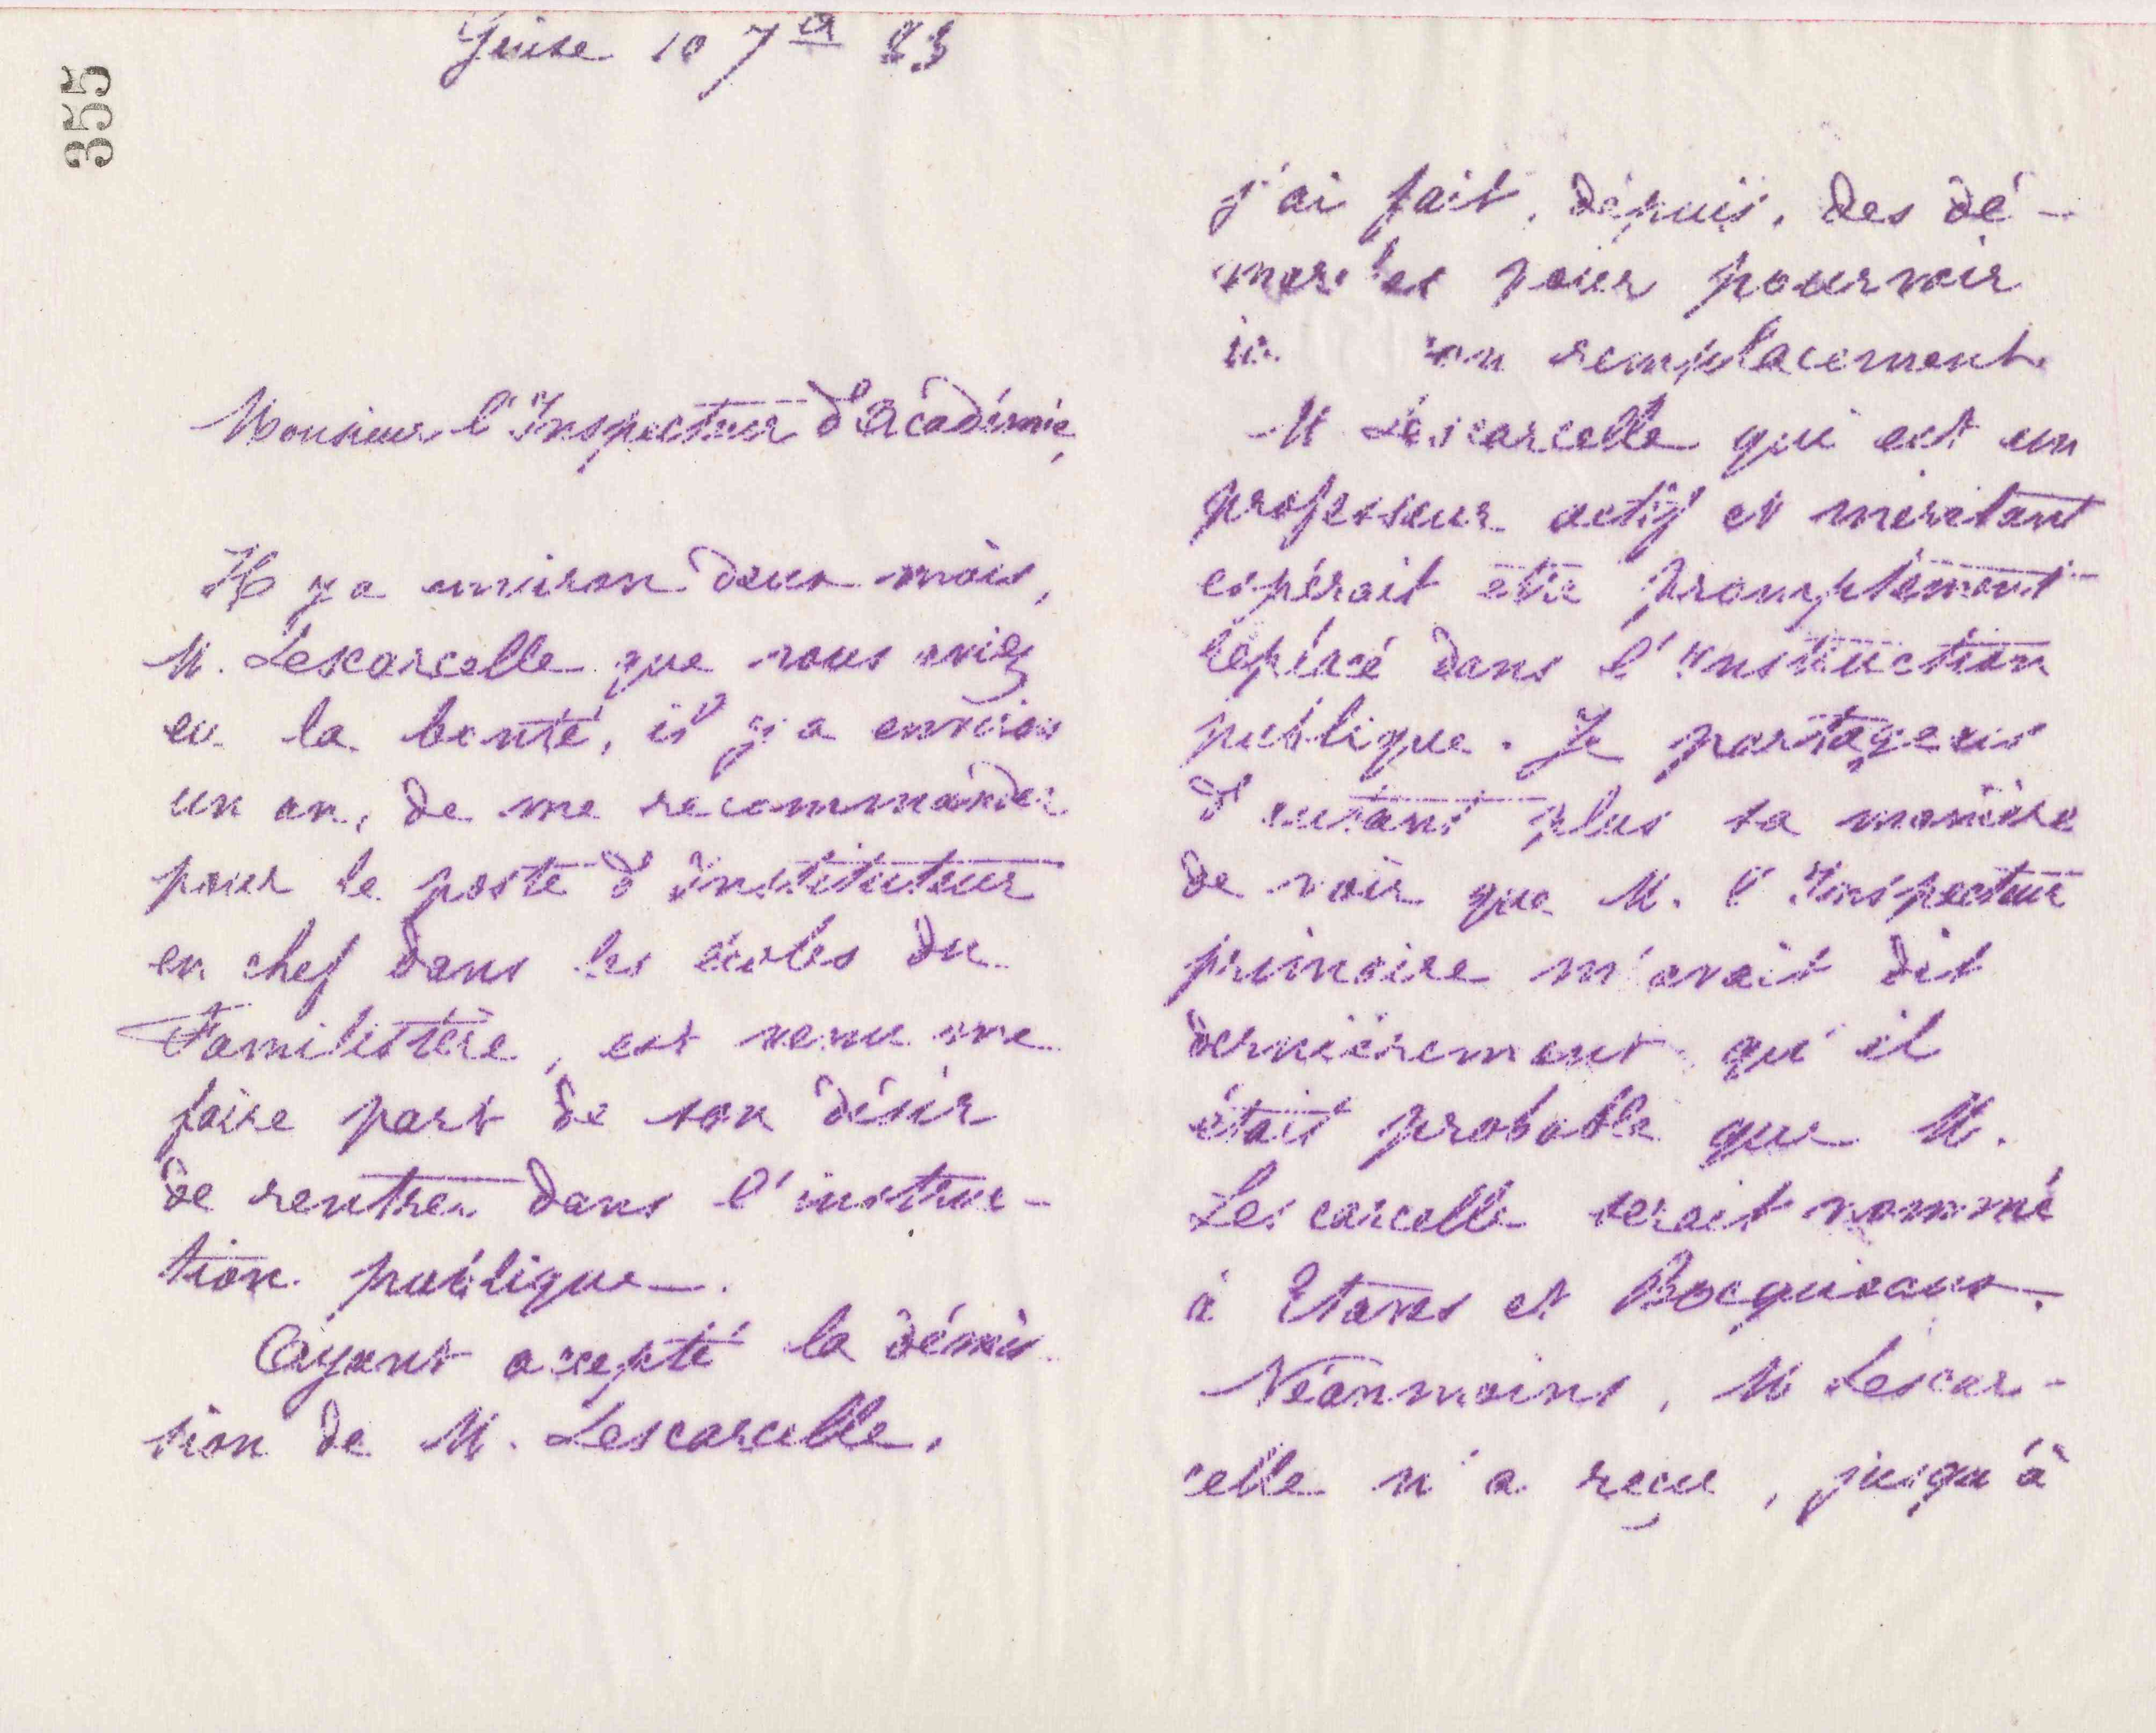 355
Guise 10 7bre 83
Monsieur l'Inspecteur d'Académie,
Il y a environ deux mois,
M. Lescarcelle que vous aviez
eu la bonté, il y a environ
un an, de me recommander
pour le poste d'instituteur
en chef dans les écoles du
Familistère, est venu me
faire part de son désir
de rentrer dans l'instruc-
tion publique.
Ayant accepté la démis-
sion de M. Lescarcelle,
j'ai fait, depuis, des dé-
marches pour pourvoir
à son remplacement.
M Lescarcelle qui est un
professeur actif et méritant
espérait être promptement
replacé dans l'Instruction
publique. Je partageais
d'autant plus sa manière
de voir que M. l'Inspecteur
primaire m'avait dit
dernièrement qu'il
était probable que M.
Lescarcelle serait nommé
à Etaves et Bocquiaux.
Néanmoins, M Lescar-
celle n'a reçu, jusqu'à